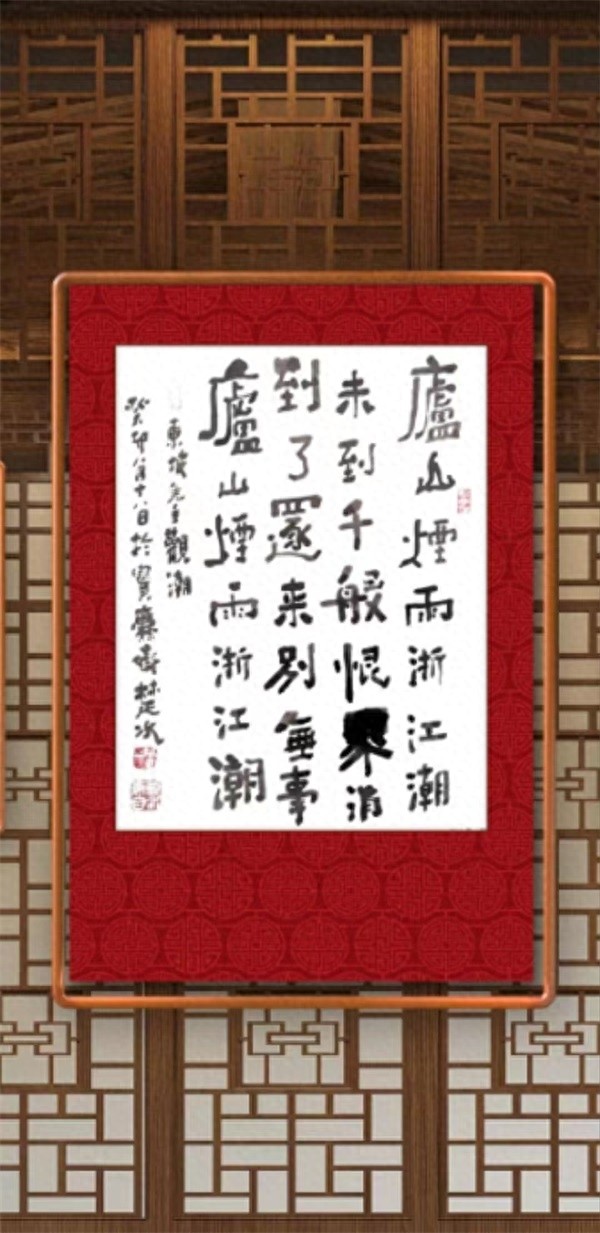 廬山煙雨浙江潮
未到千般恨消
到了還來別無事
廬山煙雨浙江潮
東坡先生觀潮
癸卯八月十八日於寶